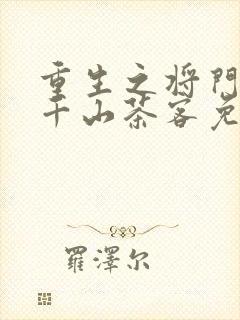 重生之将門
千山茶客免
羅澤尔